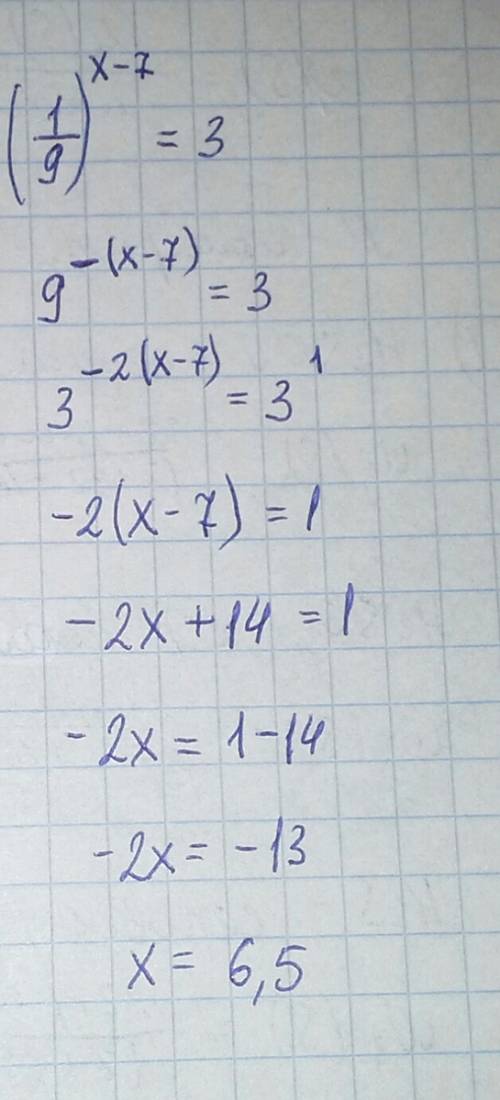 (1/9)^(x-7) = 3
9^(-(x-7)) = 3
3^(-2(x-7)) = 3^1
-2(x-7) = 1
-2x + 14 = 1
-2x = 1-14
-2x = -13
x = 6,5